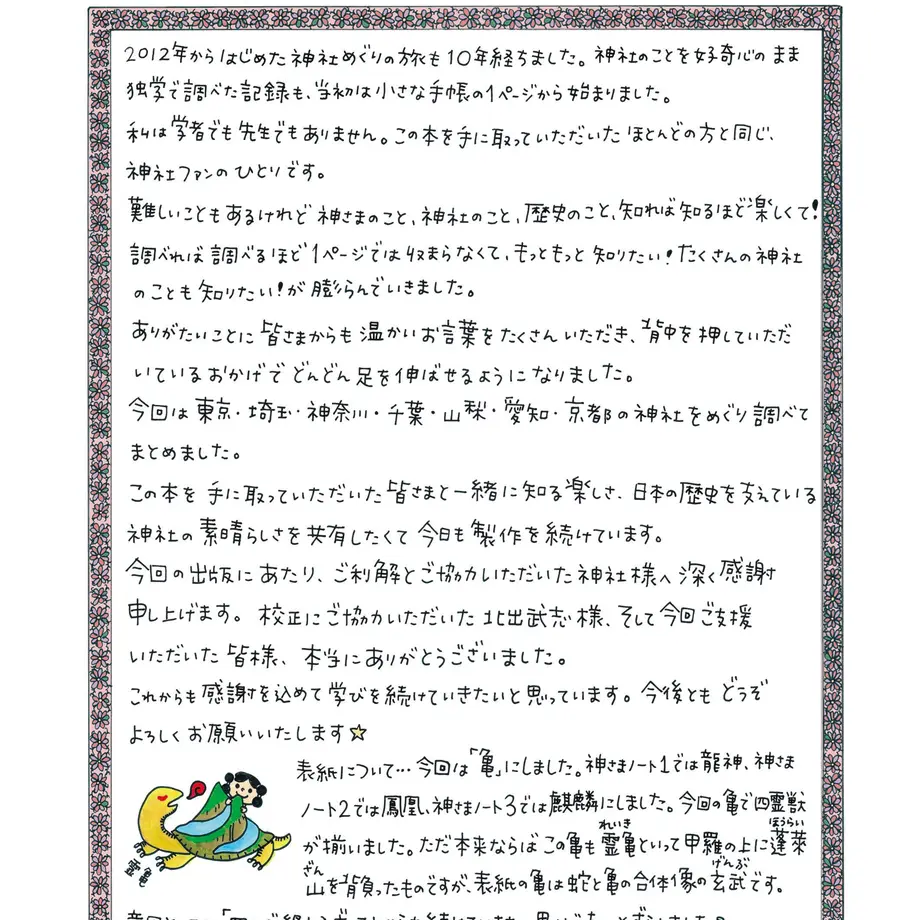 2012年からはじめた神社めぐりの旅も10年経ちました。神社のことを好奇心のまま
独学で調べた記録も、当初は小さな手帳の1ページから始まりました。
私は学者でも先生でもありません。この本を手に取っていただいたほとんどの方と同じ、
神社ファンのひとりです。
難しいこともあるけれど神さまのこと、神社のこと、歴史のこと、知れば知るほど楽しくて!
調べれば調べるほど1ページでは収まらなくて、もっともっと知りたい!たくさんの神社
のことも知りたい!が膨らんでいきました。
ありがたいことに皆さまからも温かいお言葉をたくさんいただき、背中を押していただ
いているおかげでどんどん足を伸ばせるようになりました。
今回は東京・埼玉・神奈川・千葉・山梨・愛知・京都の神社をめぐり調べて
まとめました。
この本を手に取っていただいた皆さまと一緒に知る楽しさ、日本の歴史を支えている
神社の素晴らしさを共有したくて今日も製作を続けています。
今回の出版にあたり、ご利解とご協力いただいた神社様へ深く感謝
申し上げます。校正にご協力いただいた北出武志様、そして今回ご支援
いただいた皆様、本当にありがとうございました。
これからも感謝を込めて学びを続けていきたいと思っています。今後ともどうぞ
よろしくお願いいたします☆
表紙について…今回は「亀」にしました。神さまノート1では龍神、神さま
ノート2では鳳凰、神さまノート3では麒麟にしました。今回の亀で四霊獣
れいき ほうらい
が揃いました。ただ本来ならばこの亀も霊亀といって甲羅の上に蓬莱
ざん げんぶ
山を背負ったものですが、表紙の亀は蛇と亀の合体像の玄武です。
霊亀